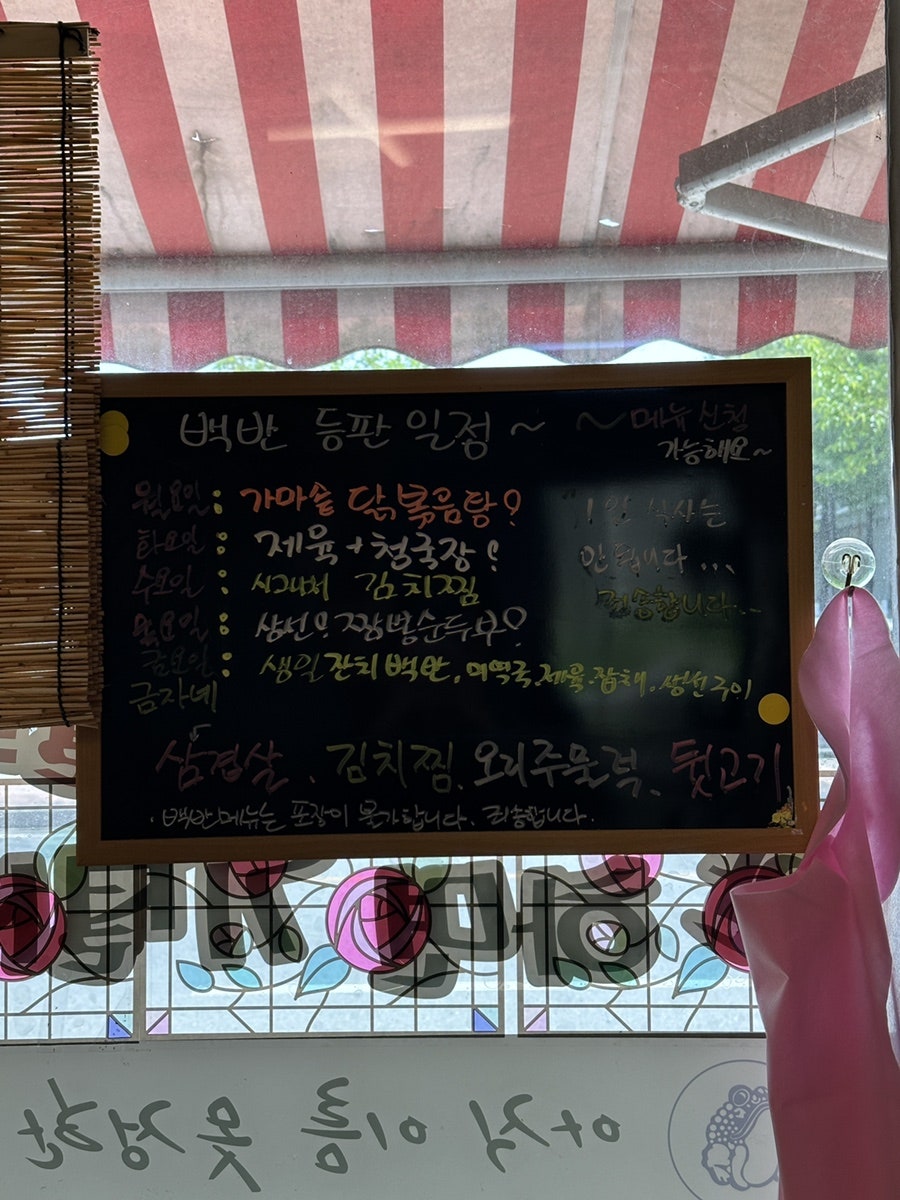 백반 등판 일정~ ~메뉴 신청
가능해요~
월요일: 가마솥 닭볶음탕?
화요일: 제육+청국장!
수요일: 김치찜
목요일: 생선? 짬뽕순두부?
금요일: 생일잔치백반, 미역국.제육.잡채.생선구이
금자네
"1인 식사는
안됩니다...
죄송합니다..
삼겹살. 김치찜. 오리주물럭. 뒷고기
·백반메뉴는 포장이 불가합니다. 죄송합니다.
아직 이름 못정한